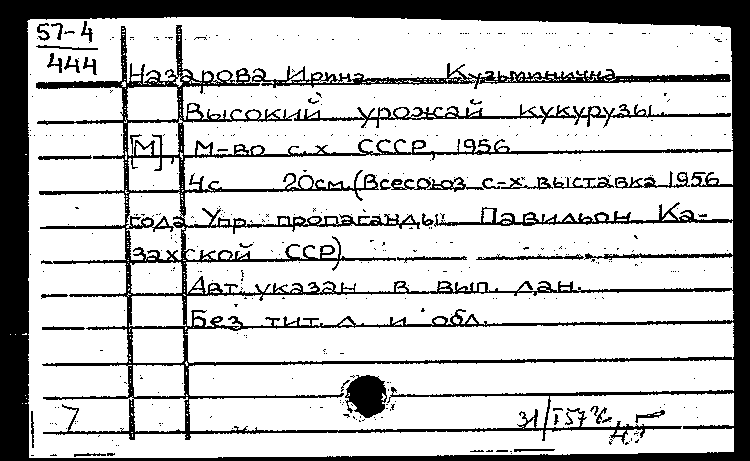 57-4
444
Назарова, Ирина Кузьминична
Высокий урожай кукурузы.
[М], М-во с.х. СССР, 1956
4с 20см. (Всесоюз. с-х. выставка 1956
года. Упр. пропаганды. Павильон Ка-
захской ССР).
Авт. указан в вып. дан.
Без тит. л. и обл.
7
31/I 57